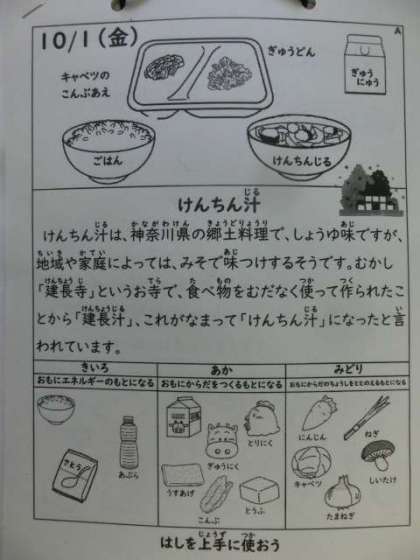 10/1(金)
A
キャベツの
こんぶあえ
ぎゅうどん
ぎゅう
にゅう
ごはん
けんちんじる
けんちん汁
けんちん汁は、神奈川県の郷土料理で、しょうゆ味ですが、
地域や家庭によっては、みそで味つけするそうです。むかし
「建長寺」というお寺で、食べ物をむだなく使って作られたこ
とから「建長汁」、これがなまって「けんちん汁」になったと言
われています。
きいろ
おもにエネルギーのもとになる
さとう
あぶら
あか
おもにからだをつくるもとになる
とりにく
ぎゅうにく
うすあげ
こんぶ
とうふ
みどり
おもにからだのちょうしをととのえるもとになる
にんじん
ねぎ
キャベツ
しいたけ
たまねぎ
はしを上手に使おう